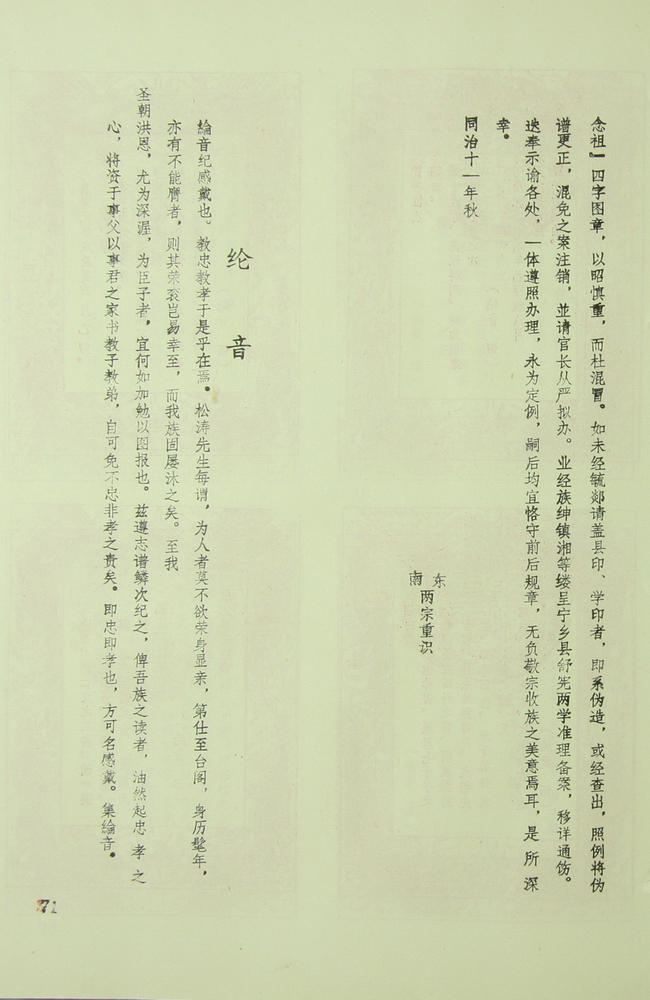 念祖』四字图章，以昭慎重，而杜混冒。如未经毓郯请盖县印、学印者，即系伪造，或经查出，照例将伪
谱更正，混免之案注销，並请官长从严拟办。业经族绅镇湘等缕呈宁乡县舒宪两学准理备案，移详通饬。
迭奉示谕各处，一体遵照办理，永为定例，嗣后均宜恪守前后规章，无负敬宗收族之美意焉耳，是所深
幸。
同治十一年秋
东
南
两宗重识
纶音
綸音纪感戴也。教忠教孝于是乎在焉。松涛先生每谓，为人者莫不欲荣身显亲，第仕至台阁，身历髦年，
亦有不能膺者，则其荣衮岂易幸至，而我族固屡沐之矣。至我
圣朝洪恩，尤为深渥，为臣子者，宜何如加勉以图报也。兹遵志谱鳞次纪之，俾吾族之读者，油然起忠孝之
心，将资于事父以事君之家书教子教弟，自可免不忠非孝之责矣。即忠即孝也，方可名感戴。集綸音。
71